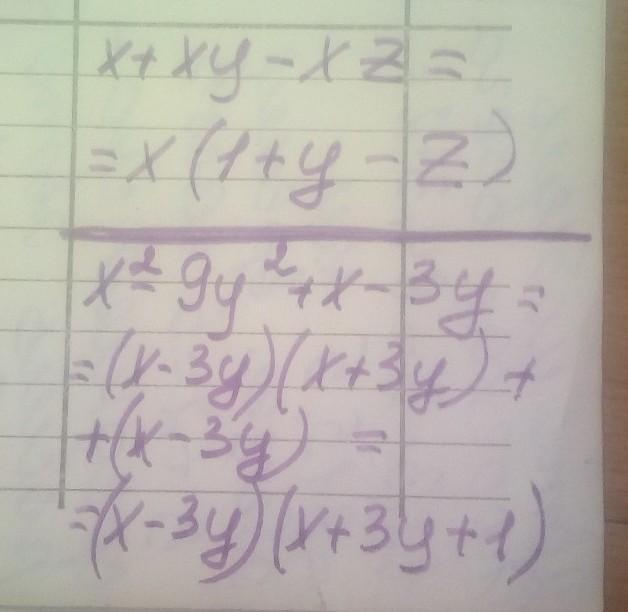 x + xy - xz =
= x (1 + y - z)
x² - 9y² + x - 3y =
= (x - 3y)(x + 3y) +
+ (x - 3y) =
= (x - 3y)(x + 3y + 1)